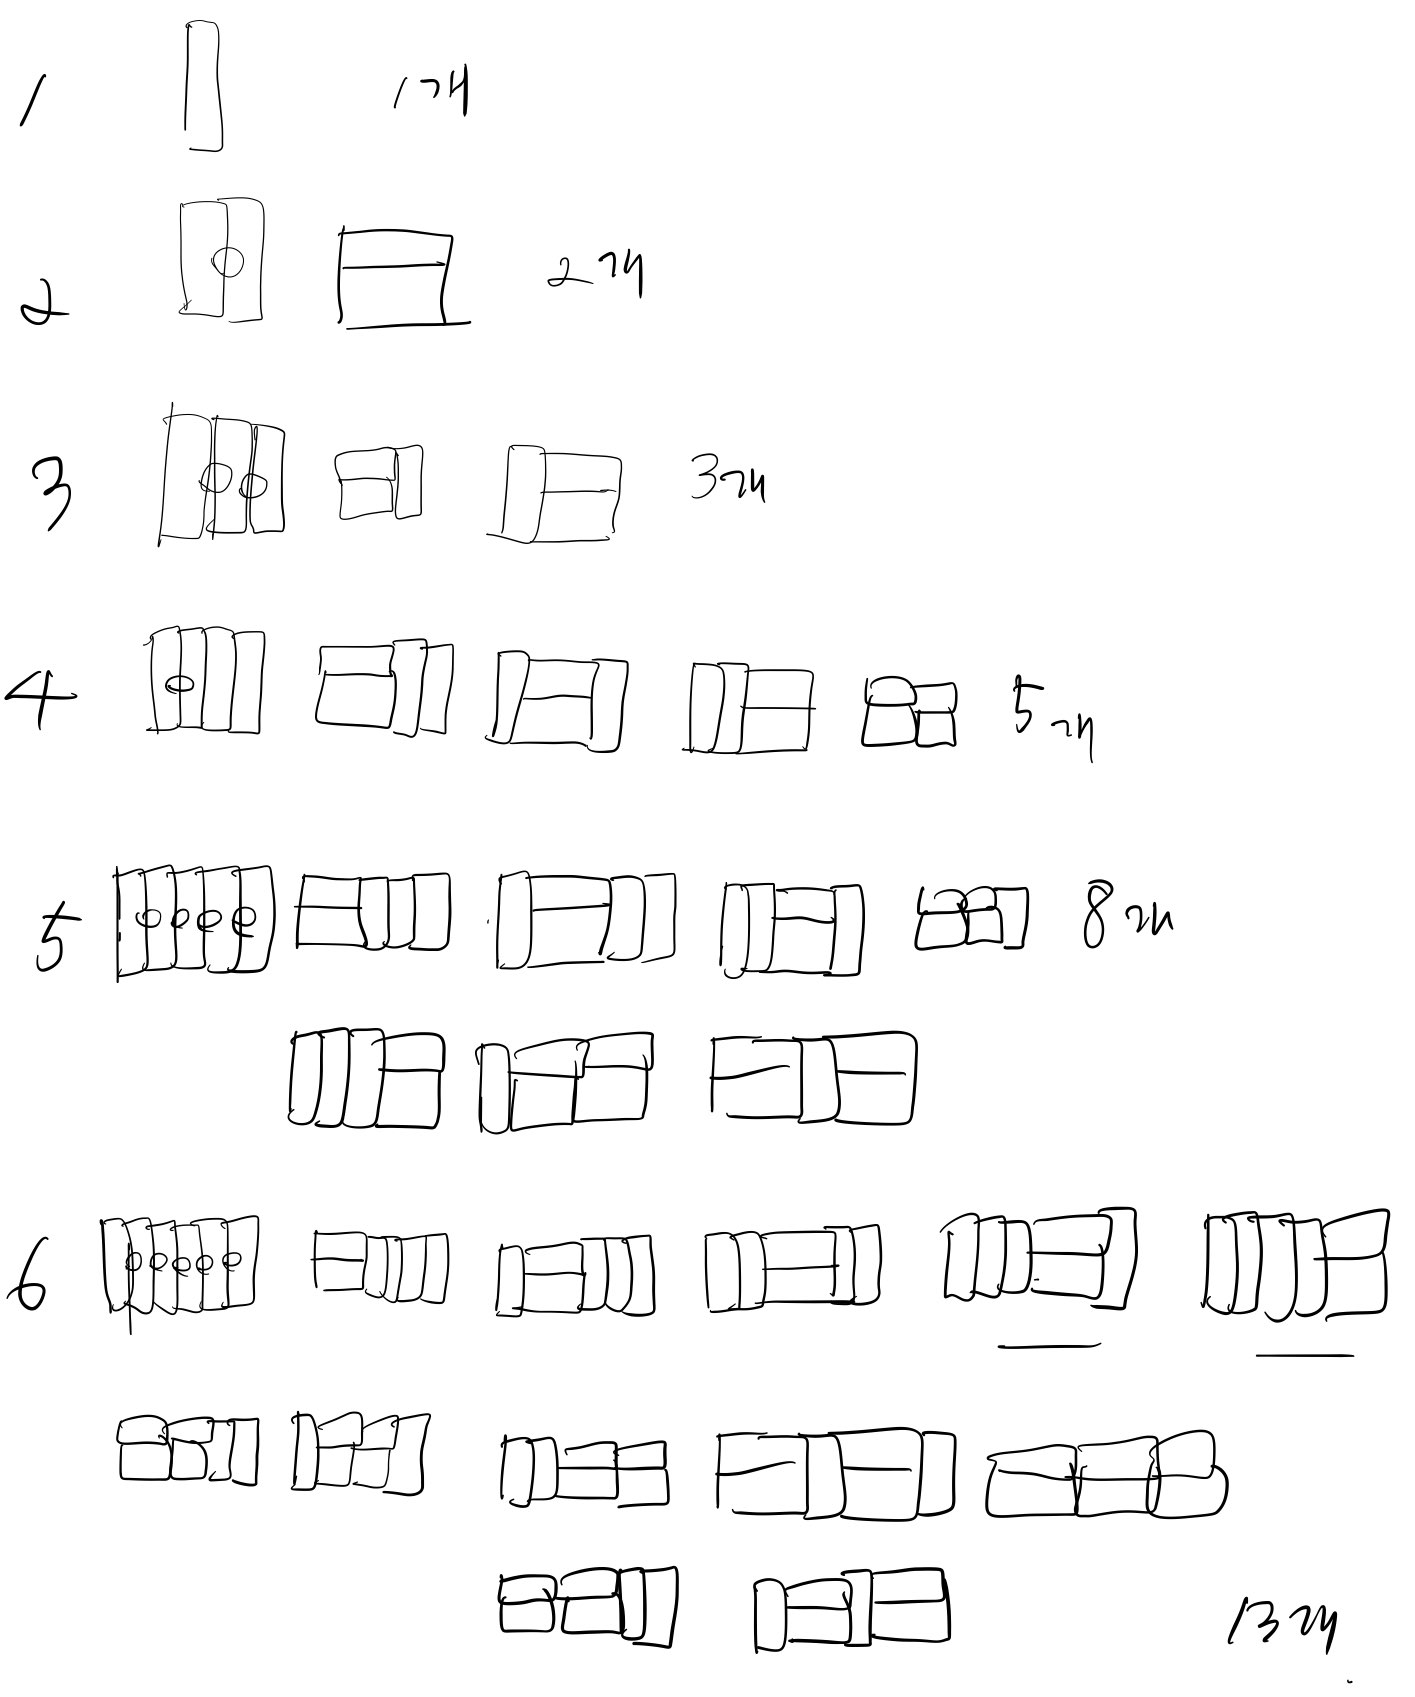 1 1개
2 2개
3 3개
4 5개
5 8개
6
13개